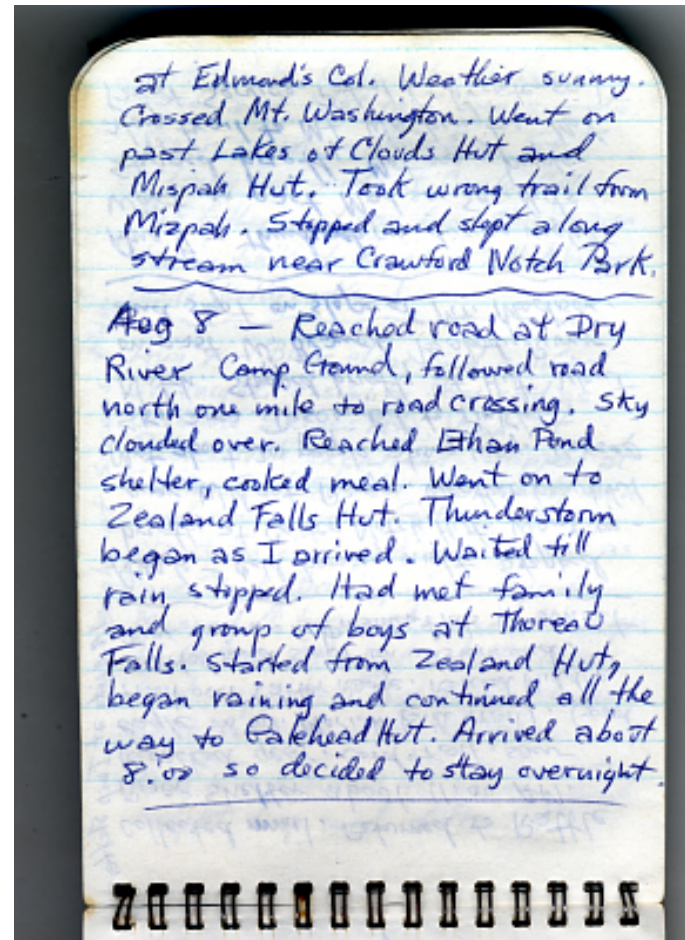 at Edmond's Col. Weather sunny.
Crossed Mt. Washington. Went on
past Lakes of Clouds Hut and
Mispah Hut. Took wrong trail from
Mizpah. Stopped and slept along
stream near Crawford Notch Park.
Aug 8 — Reached road at Dry
River Camp Ground, followed road
north one mile to road crossing. Sky
clouded over. Reached Ethan Pond
shelter, cooked meal. Went on to
Zealand Falls Hut. Thunderstorm
began as I arrived. Waited till
rain stopped. Had met family
and group of boys at Thoreau
Falls. Started from Zealand Hut,
began raining and continued all the
way to Galehead Hut. Arrived about
8:00 so decided to stay overnight.